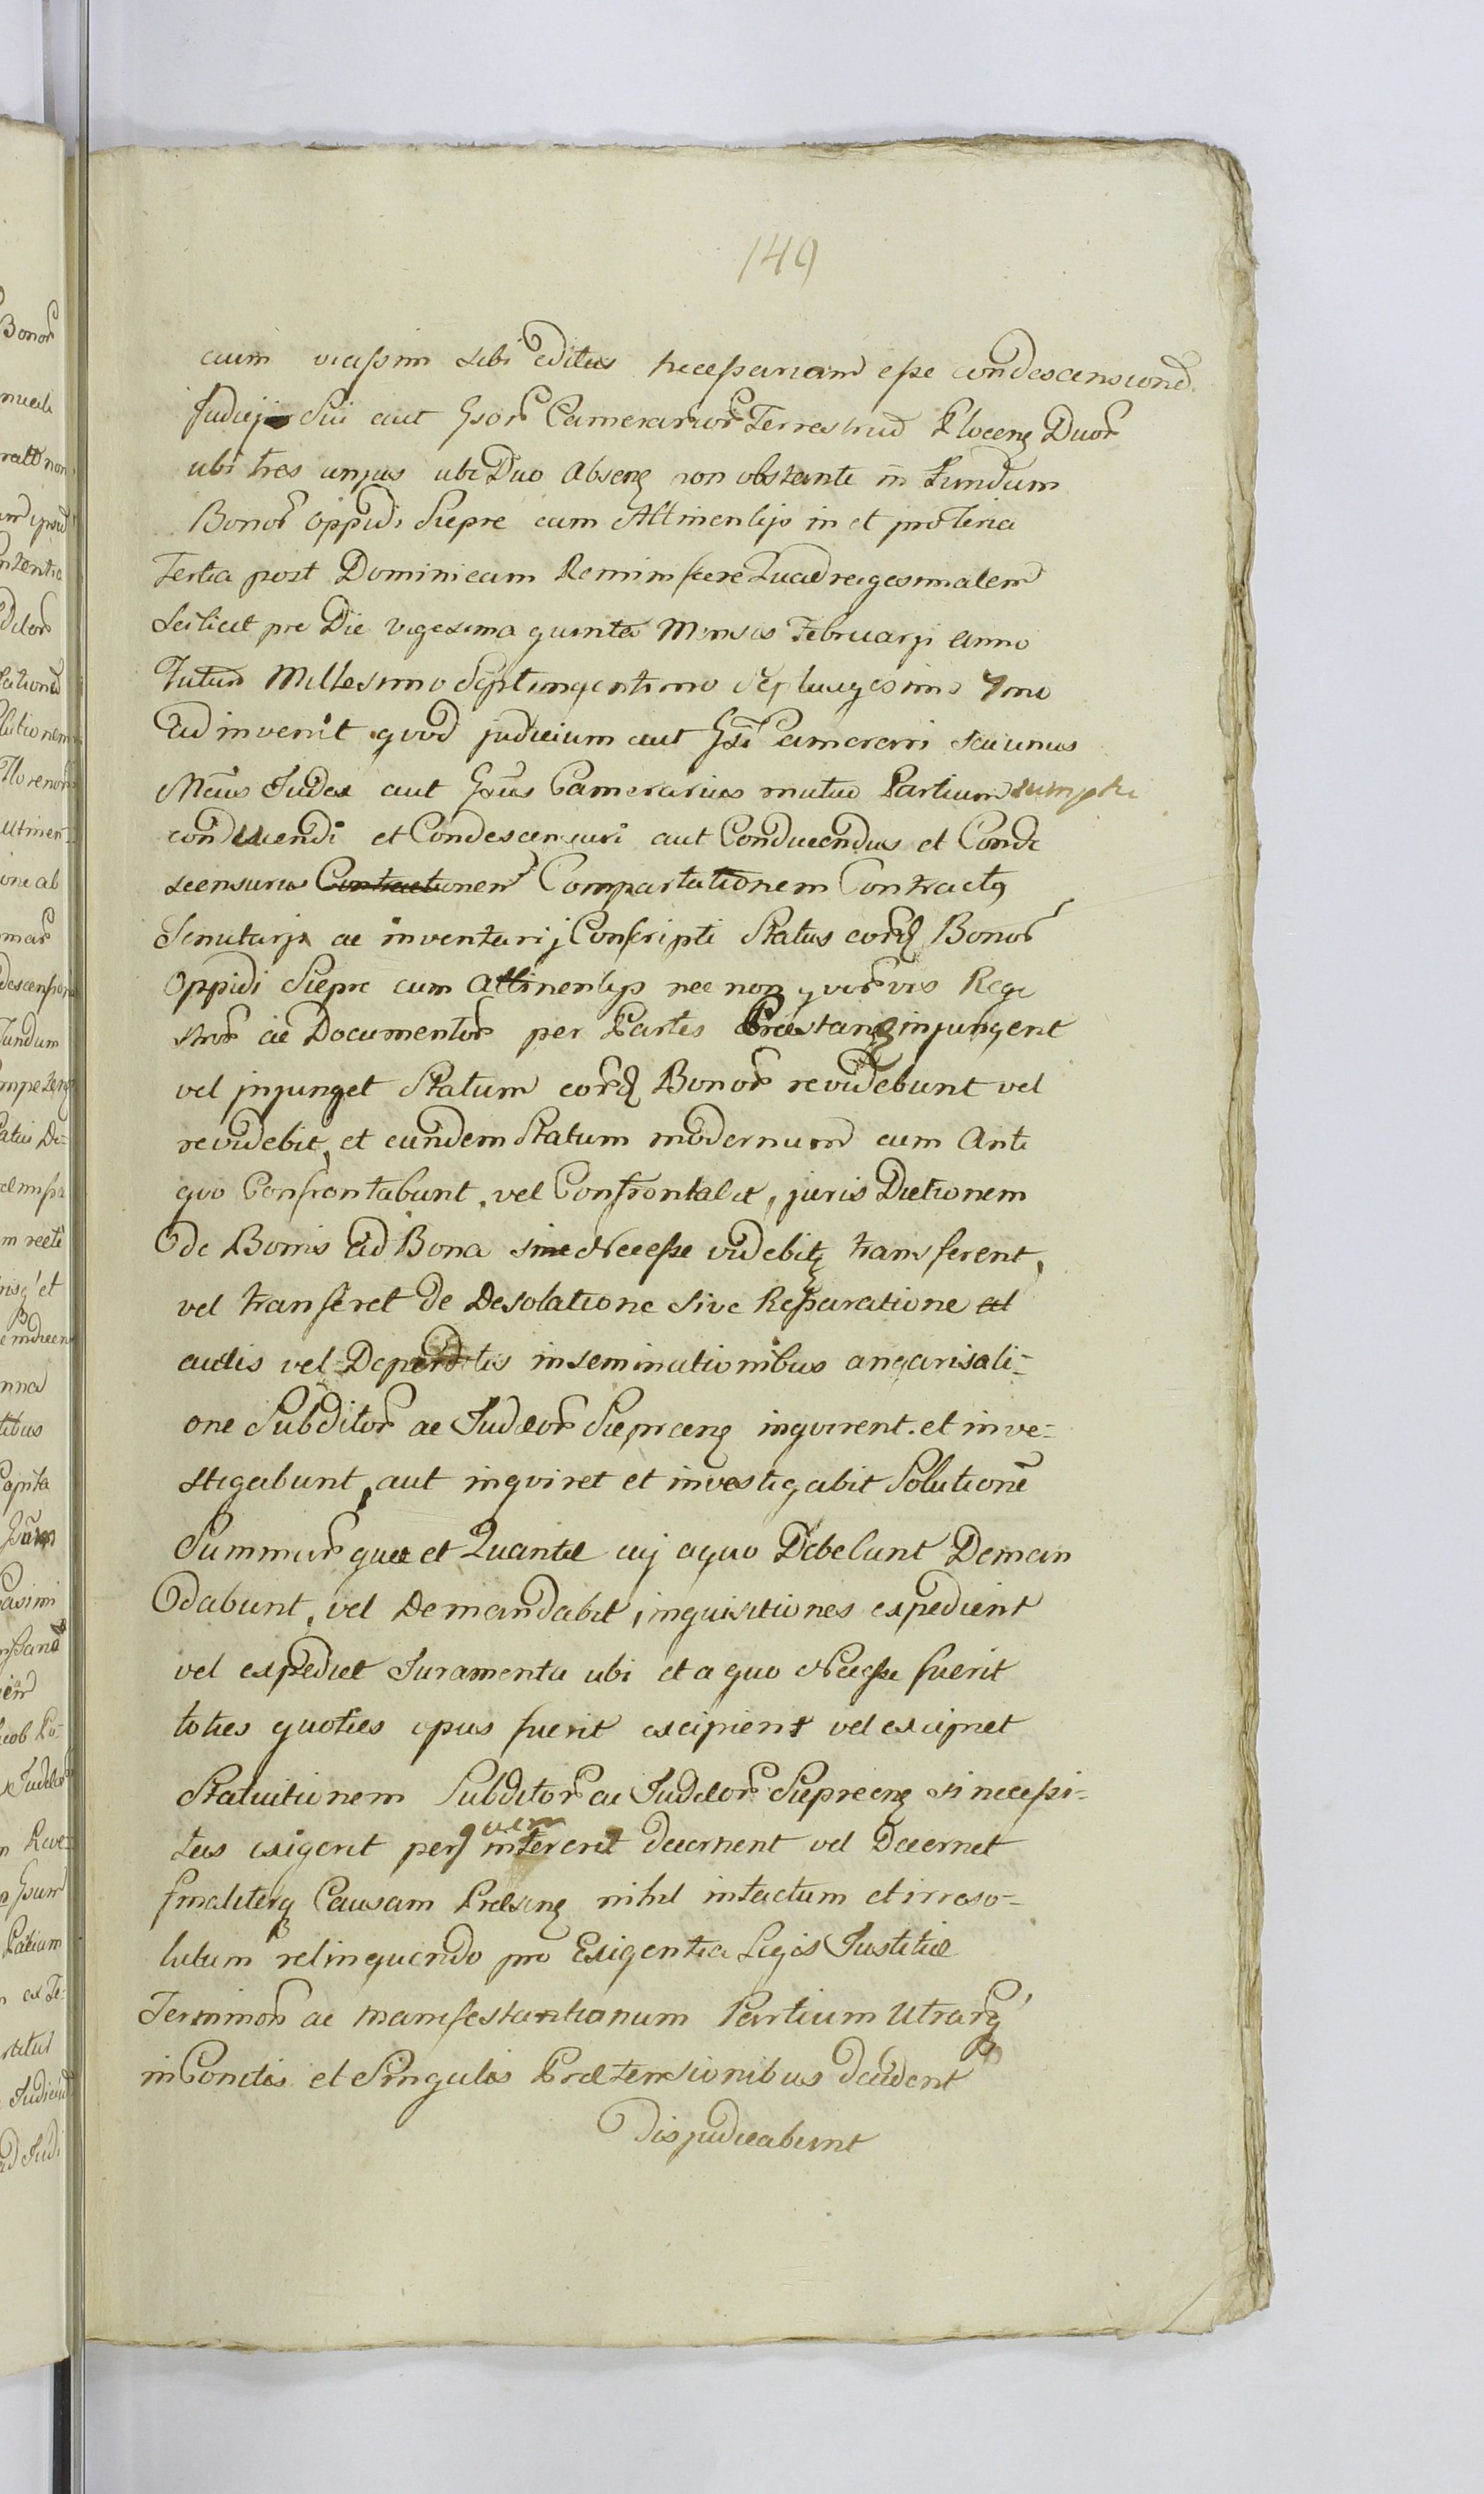 149
cum vicissim sibi editas necessariam esse condescensionẽ
Judicij Sui aut Gsor̃ Camerarior̃ Terrestriũ Plocen̄ Duor̃
ubi tres unjus ubi Duo absen̄ non obstante in Fundum
Bonor̃ oppidi Siepre cum Attinentijs in et pro Feria
Tertia post Dominicam Reminiscere Quadragesimalem
Scilicet pro Die vigesima quinta Mensis Februarji anno
Futuro Millesimo Septingentimo Septuagesimo 7mo
adinvenit quod judicium aut Gsi Camerarri seu unus
Mãus Judex aut Gsus Camerarius mutuo Partium sumptu
conducendi et Condescensuri aut Conducendus et Conde
scensurus Contractionem Compartationem Contractq
Scrutarjs ac inventarij Conscripti Status eord Bonor̃
Oppidi Siepre cum Attinentijs nec non quor̃vis Rege
stror̃ ac Documentor̃ per Partes Præstan̄ injungent
vel injunget Statum eord Bonor̃ revidebunt vel
revidebit, et eundem Statum modernum cum Anti
quo Confrontabunt, vel Confrontabit, juris Dictionem
de Bonis ad Bona sine Necesse videbitq transferent,
vel transferet de Desolatione sive Reparatione
auctis vel Deperditis inseminationibus angarisati-
one Subditor̃ ac Judæor̃ Sieprcen̄ inquirent et inve-
stigabunt, aut inquiret et investigabit Solutionẽ
Summar̃ quæ et Quantæ cuj aquo Debebunt Deman
dabunt, vel Demandabit, inquisitiones expedient
vel expediet Juramenta ubi et a quo Necesse fuerit
toties quoties opus fuerit excipient vel excipiet
Statuitionem Subditor̃ ac Judæor̃ Sieprcen̄ si necessi-
tas exigerit perq quem intererit decernent vel Decernet
finaliterq Causam Præsen̄ nihil intactum et irreso-
lutum relinquendo pro Exigentia Legis Justitiæ
Terminor̃ ac manifestantionum Partium Utrarq
in Conctis et Singulis Prætensionibus decident
Disjudicabunt